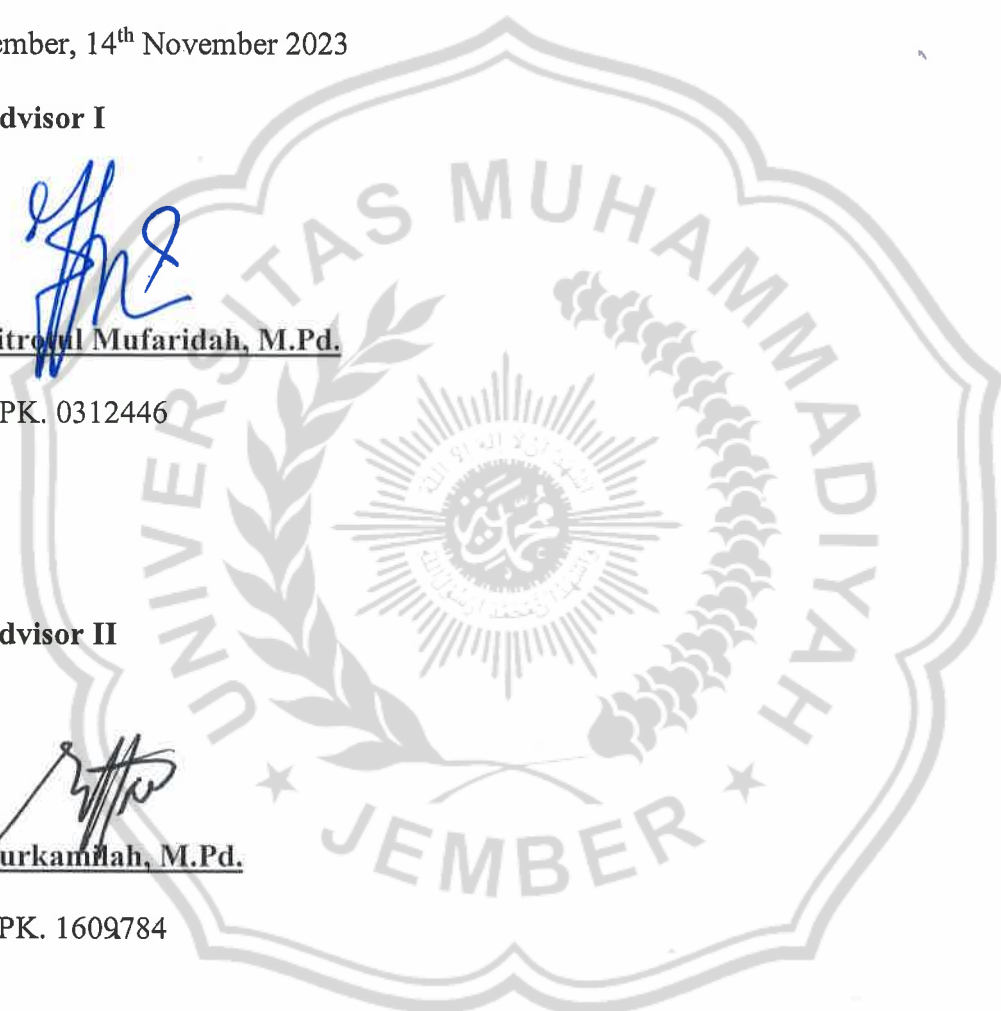 ember, 14th November 2023
dvisor I
itrotul Mufaridah, M.Pd.
PK. 0312446
dvisor II
urkamilah, M.Pd.
PK. 1609784
UNIVERSITAS MUHAMMADIYAH
JEMBER